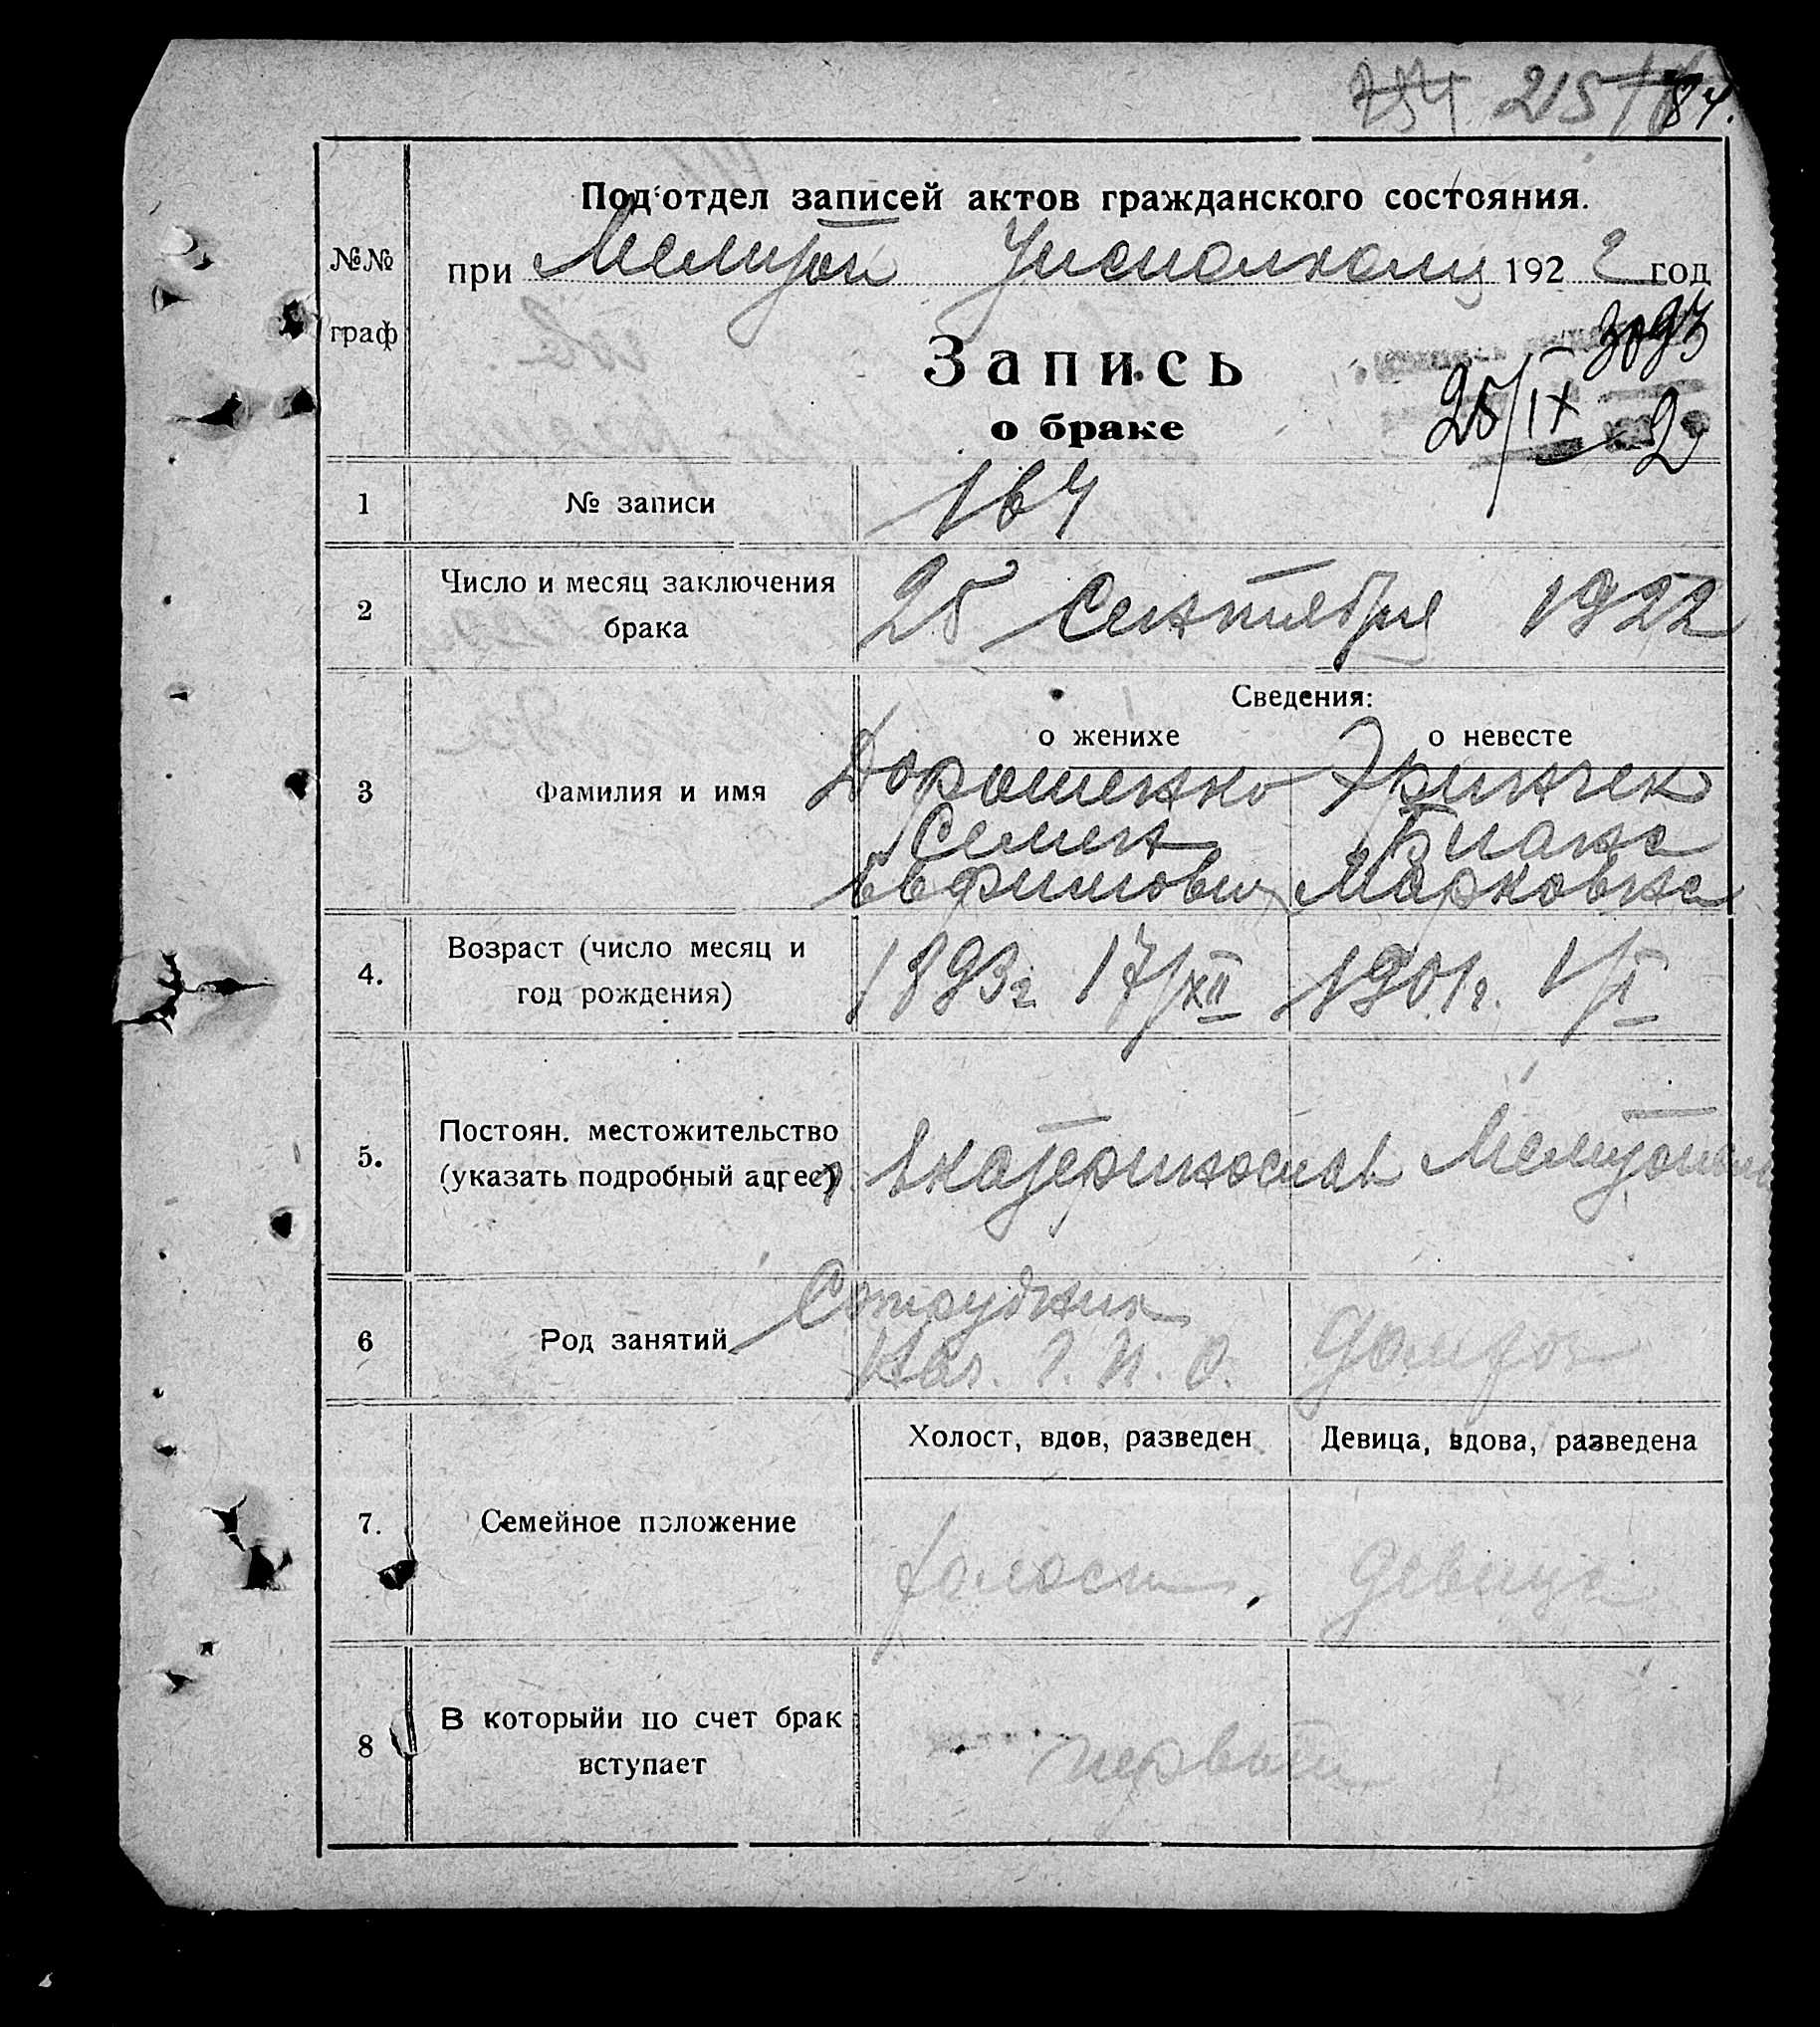 215 84.
Под'отдел записей актов гражданского состояния.
№№
граф
при Мелитоп Уисполкому 1922 год
Запись
о браке
3093
25/IX 2
1 № записи 164
2 Число и месяц заключения
брака
25 Сентября 1922
Сведения:
о женихе о невесте
3 Фамилия и имя
Дорошенко
Семен
Евфимович
Марковна
4. Возраст (число месяц и
год рождения)
1893г 17/XII 1901г. 1/I
5. Постоян. местожительство
(указать подробный адрес)
Екатеринослав Мелитополь
6 Род занятий
Сотрудник
Нач. Г. П. О.
Домхоз
Холост, вдов, разведен Девица, вдова, разведена
7. Семейное положение
холост девица
8 В которыйи по счет брак
вступает
первый